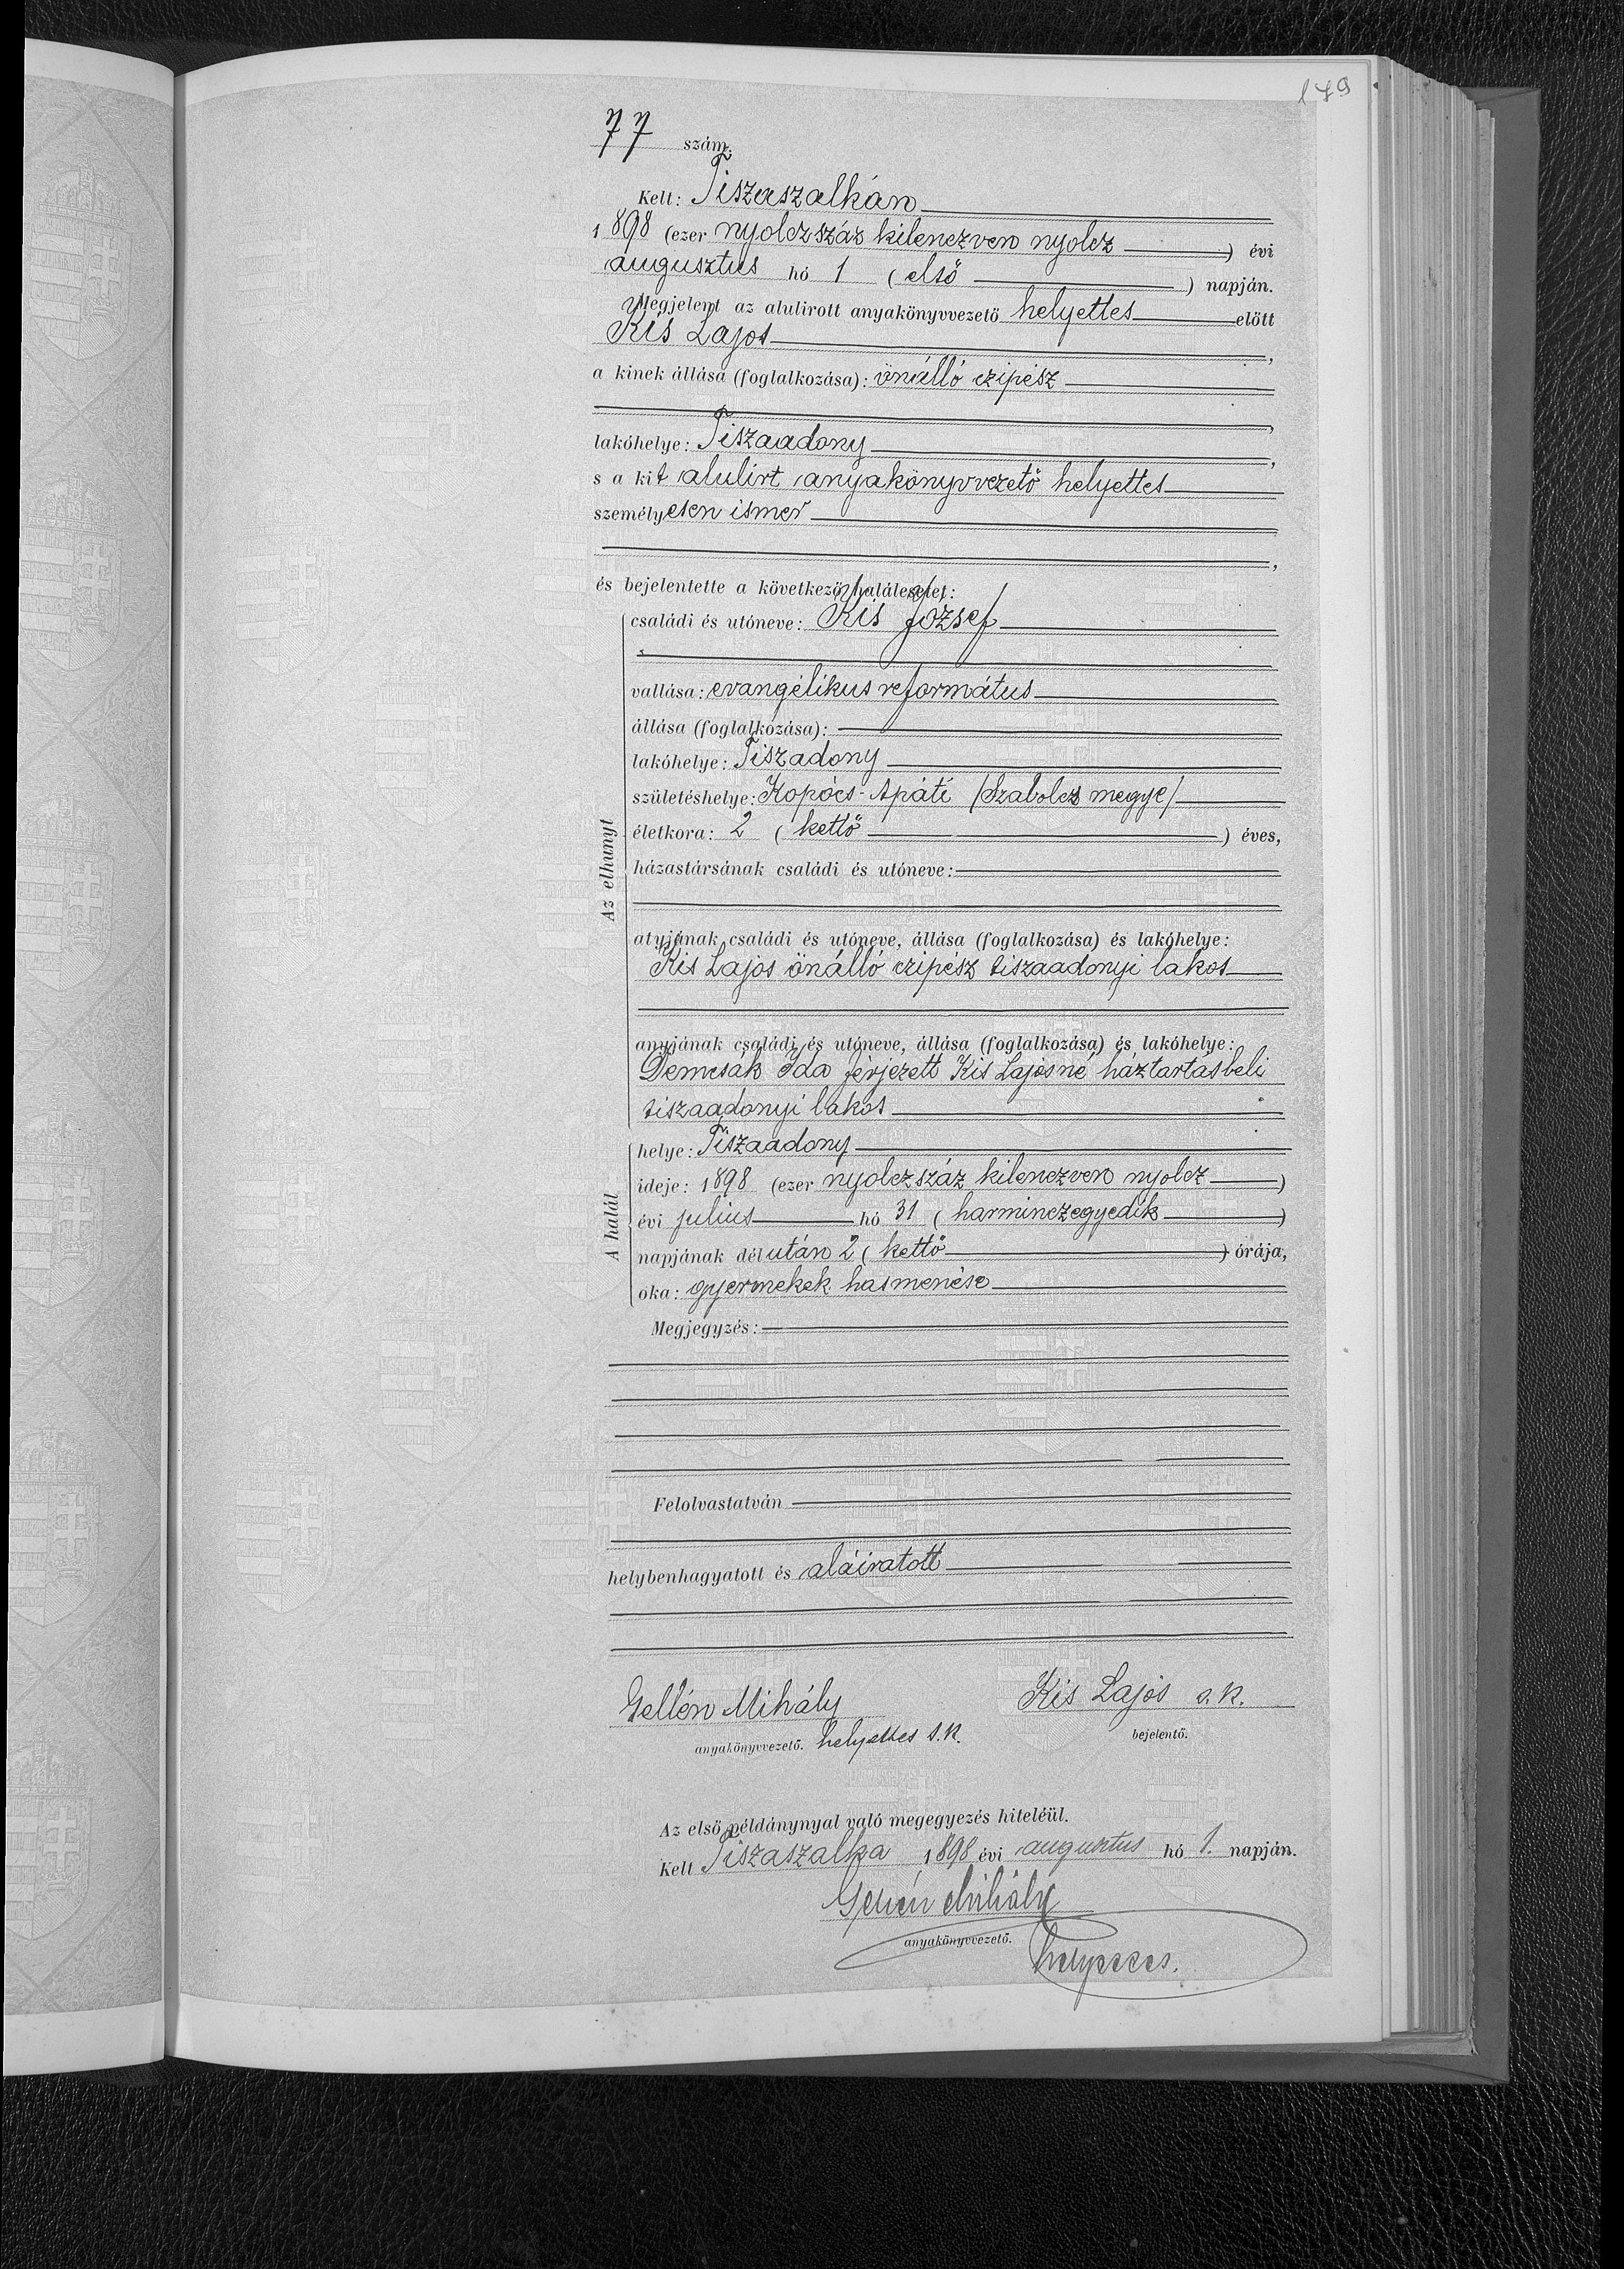 179
77 szám.
Kelt: Tiszaszalkán
1898 (ezer nyolczszáz kilenczven nyolcz) évi
augusztus hó 1 (első) napján.
Megjelent az alulirott anyakönyvvezető helyettes előtt
Kis Lajos,
a kinek állása (foglalkozása): önálló czipész
,
lakóhelye: Tiszaadony,
s a kit alulirt anyakönyvvezető helyettes
személyesen ismer
,
és bejelentette a következő halálesetet:
Az elhunyt
családi és utóneve: Kis József
vallása: evangélikus református
állása (foglalkozása):
lakóhelye: Tiszadony
születéshelye: Kopócs-Apáti /Szabolcs megye/
életkora: 2 (kettő) éves,
házastársának családi és utóneve:
atyjának családi és utóneve, állása (foglalkozása) és lakóhelye:
Kis Lajos önálló czipész tiszaadonyi lakos
anyjának családi és utóneve, állása (foglalkozása) és lakóhelye:
Demcsák Ida férjezett Kis Lajosné háztartásbeli
tiszaadonyi lakos
A halál
helye: Tiszaadony
ideje: 1898 (ezer nyolczszáz kilenczven nyolcz)
évi julius hó 31 (harminczegyedik)
napjának délután 2 (kettő) órája,
oka: gyermekek hasmenése
Megjegyzés:
Felolvastatván
helybenhagyatott és aláiratott
Gellén Mihály
Kis Lajos s. k.
anyakönyvvezető. helyettes s. k.
bejelentő.
Az első példánynyal való megegyezés hiteléül.
Kelt Tiszaszalka 1898 évi augusztus hó 1. napján.
Gellén Mihály
anyakönyvvezető.
helyettes.